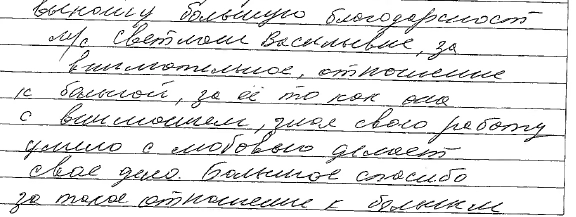 выношу большую благодарност
м/с Светлане Васильевне, за
внимательное, отношение
к больной, за её то как она
с вниманием, зная свою работу
умело с любовью делает
свое дело. Большое спасибо
за такое отношение к больным